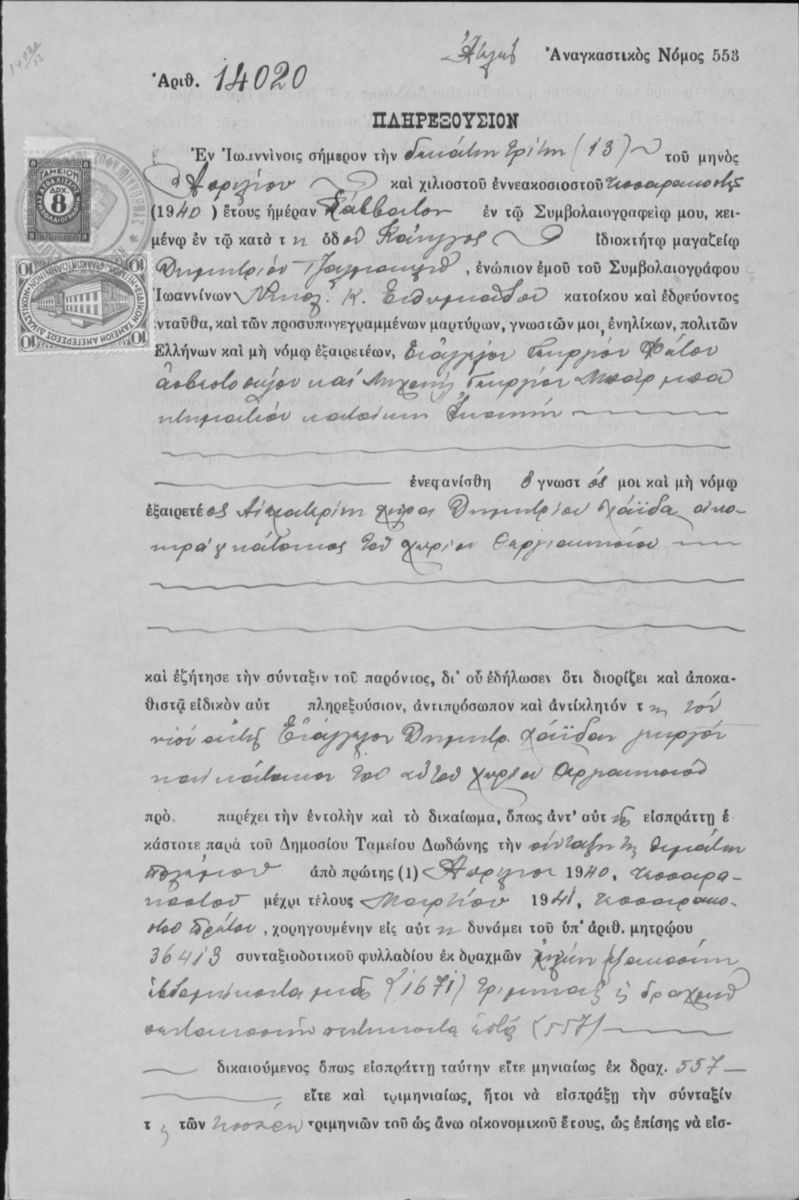 Ἀναγκαστικὸς Νόμος 553
Ἀριθ. 14020
ΠΛΗΡΕΞΟΥΣΙΟΝ
Ἐν Ἰωαννίνοις σήμερον τὴν δεκάτην τρίτην (13) τοῦ μηνὸς
Ἀπριλίου καὶ χιλιοστοῦ ἐννεακοσιοστοῦ τεσσαρακοστοῦ
(1940) ἔτους ἡμέραν Σάββατον ἐν τῷ Συμβολαιογραφείῳ μου, κει-
μένῳ ἐν τῷ κατὰ τὴν ὁδὸν Κάνιγγος ἰδιοκτήτῳ μαγαζείῳ
Δημητρίου, ἐνώπιον ἐμοῦ τοῦ Συμβολαιογράφου
Ἰωαννίνων Νικολ. Κ. Εὐθυμιάδου κατοίκου καὶ ἑδρεύοντος
ἐνταῦθα, καὶ τῶν προσυπογεγραμμένων μαρτύρων, γνωστῶν μοι, ἐνηλίκων, πολιτῶν
Ἑλλήνων καὶ μὴ νόμῳ ἐξαιρετέων, Εὐάγγελου Γεωργίου Φάτσου
καὶ Μιχαὴλ Γεωργίου Μπάρμπα
κτηματίου κατοίκων
ἐνεφανίσθη ὁ γνωστός μοι καὶ μὴ νόμῳ
ἐξαιρετέος Αἰκατερίνη χήρα Δημητρίου Χάϊδα οἰκο-
κυρὰ κάτοικος τοῦ χωρίου
καὶ ἐζήτησε τὴν σύνταξιν τοῦ παρόντος, δι' οὗ ἐδήλωσεν ὅτι διορίζει καὶ ἀποκα-
θιστᾷ εἰδικὸν αὐτ πληρεξούσιον, ἀντιπρόσωπον καὶ ἀντίκλητόν της τὸν
υἱὸν αὐτῆς Εὐάγγελον Δημητρ. Χάϊδαν γεωργὸν
καὶ κάτοικον τοῦ αὐτοῦ χωρίου
πρὸ παρέχει τὴν ἐντολὴν καὶ τὸ δικαίωμα, ὅπως ἀντ' αὐτῆς εἰσπράττῃ ἑ
κάστοτε παρὰ τοῦ Δημοσίου Ταμείου Δωδώνης τὴν σύνταξίν της θυμάτων
πολέμου ἀπὸ πρώτης (1) Ἀπριλίου 1940, τεσσαρα-
κοστοῦ μέχρι τέλους Μαρτίου 1941, τεσσαρακο-
στοῦ πρώτου, χορηγουμένην εἰς αὐτὴν δυνάμει τοῦ ὑπ' ἀριθ. μητρώου
36413 συνταξιοδοτικοῦ φυλλαδίου ἐκ δραχμῶν χιλίων ἑξακοσίων
ἑβδομήκοντα μιᾶς (1671) τριμηνιαίως ἢ δραχμῶν
πεντακοσίων πεντήκοντα ἑπτὰ (557)
δικαιούμενος ὅπως εἰσπράττῃ ταύτην εἴτε μηνιαίως ἐκ δραχ. 557
εἴτε καὶ τριμηνιαίως, ἤτοι νὰ εἰσπράξῃ τὴν σύνταξίν
της τῶν τεσσάρων τριμηνιῶν τοῦ ὡς ἄνω οἰκονομικοῦ ἔτους, ὡς ἐπίσης νὰ εἰσ-